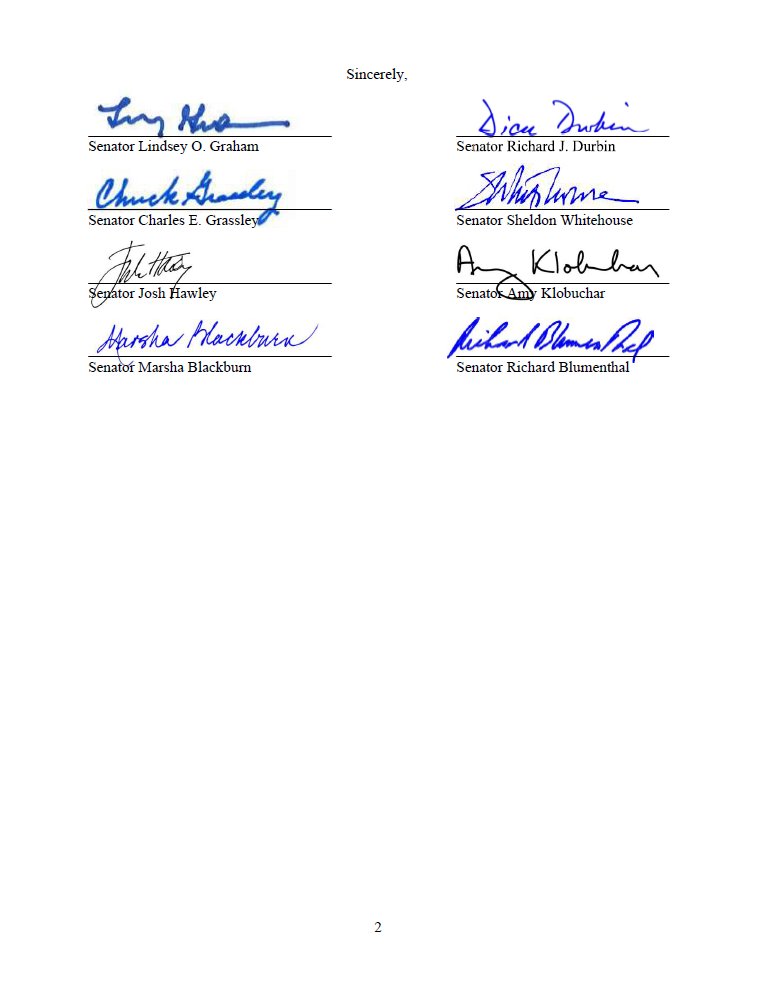 Sincerely,
Senator Lindsey O. Graham
Dick Durbin
Senator Richard J. Durbin
Chuck Grassley
Senator Charles E. Grassley
Senator Sheldon Whitehouse
Josh Hawley
Senator Josh Hawley
Amy Klobuchar
Senator Amy Klobuchar
Marsha Blackburn
Senator Marsha Blackburn
Richard Blumenthal
Senator Richard Blumenthal
2